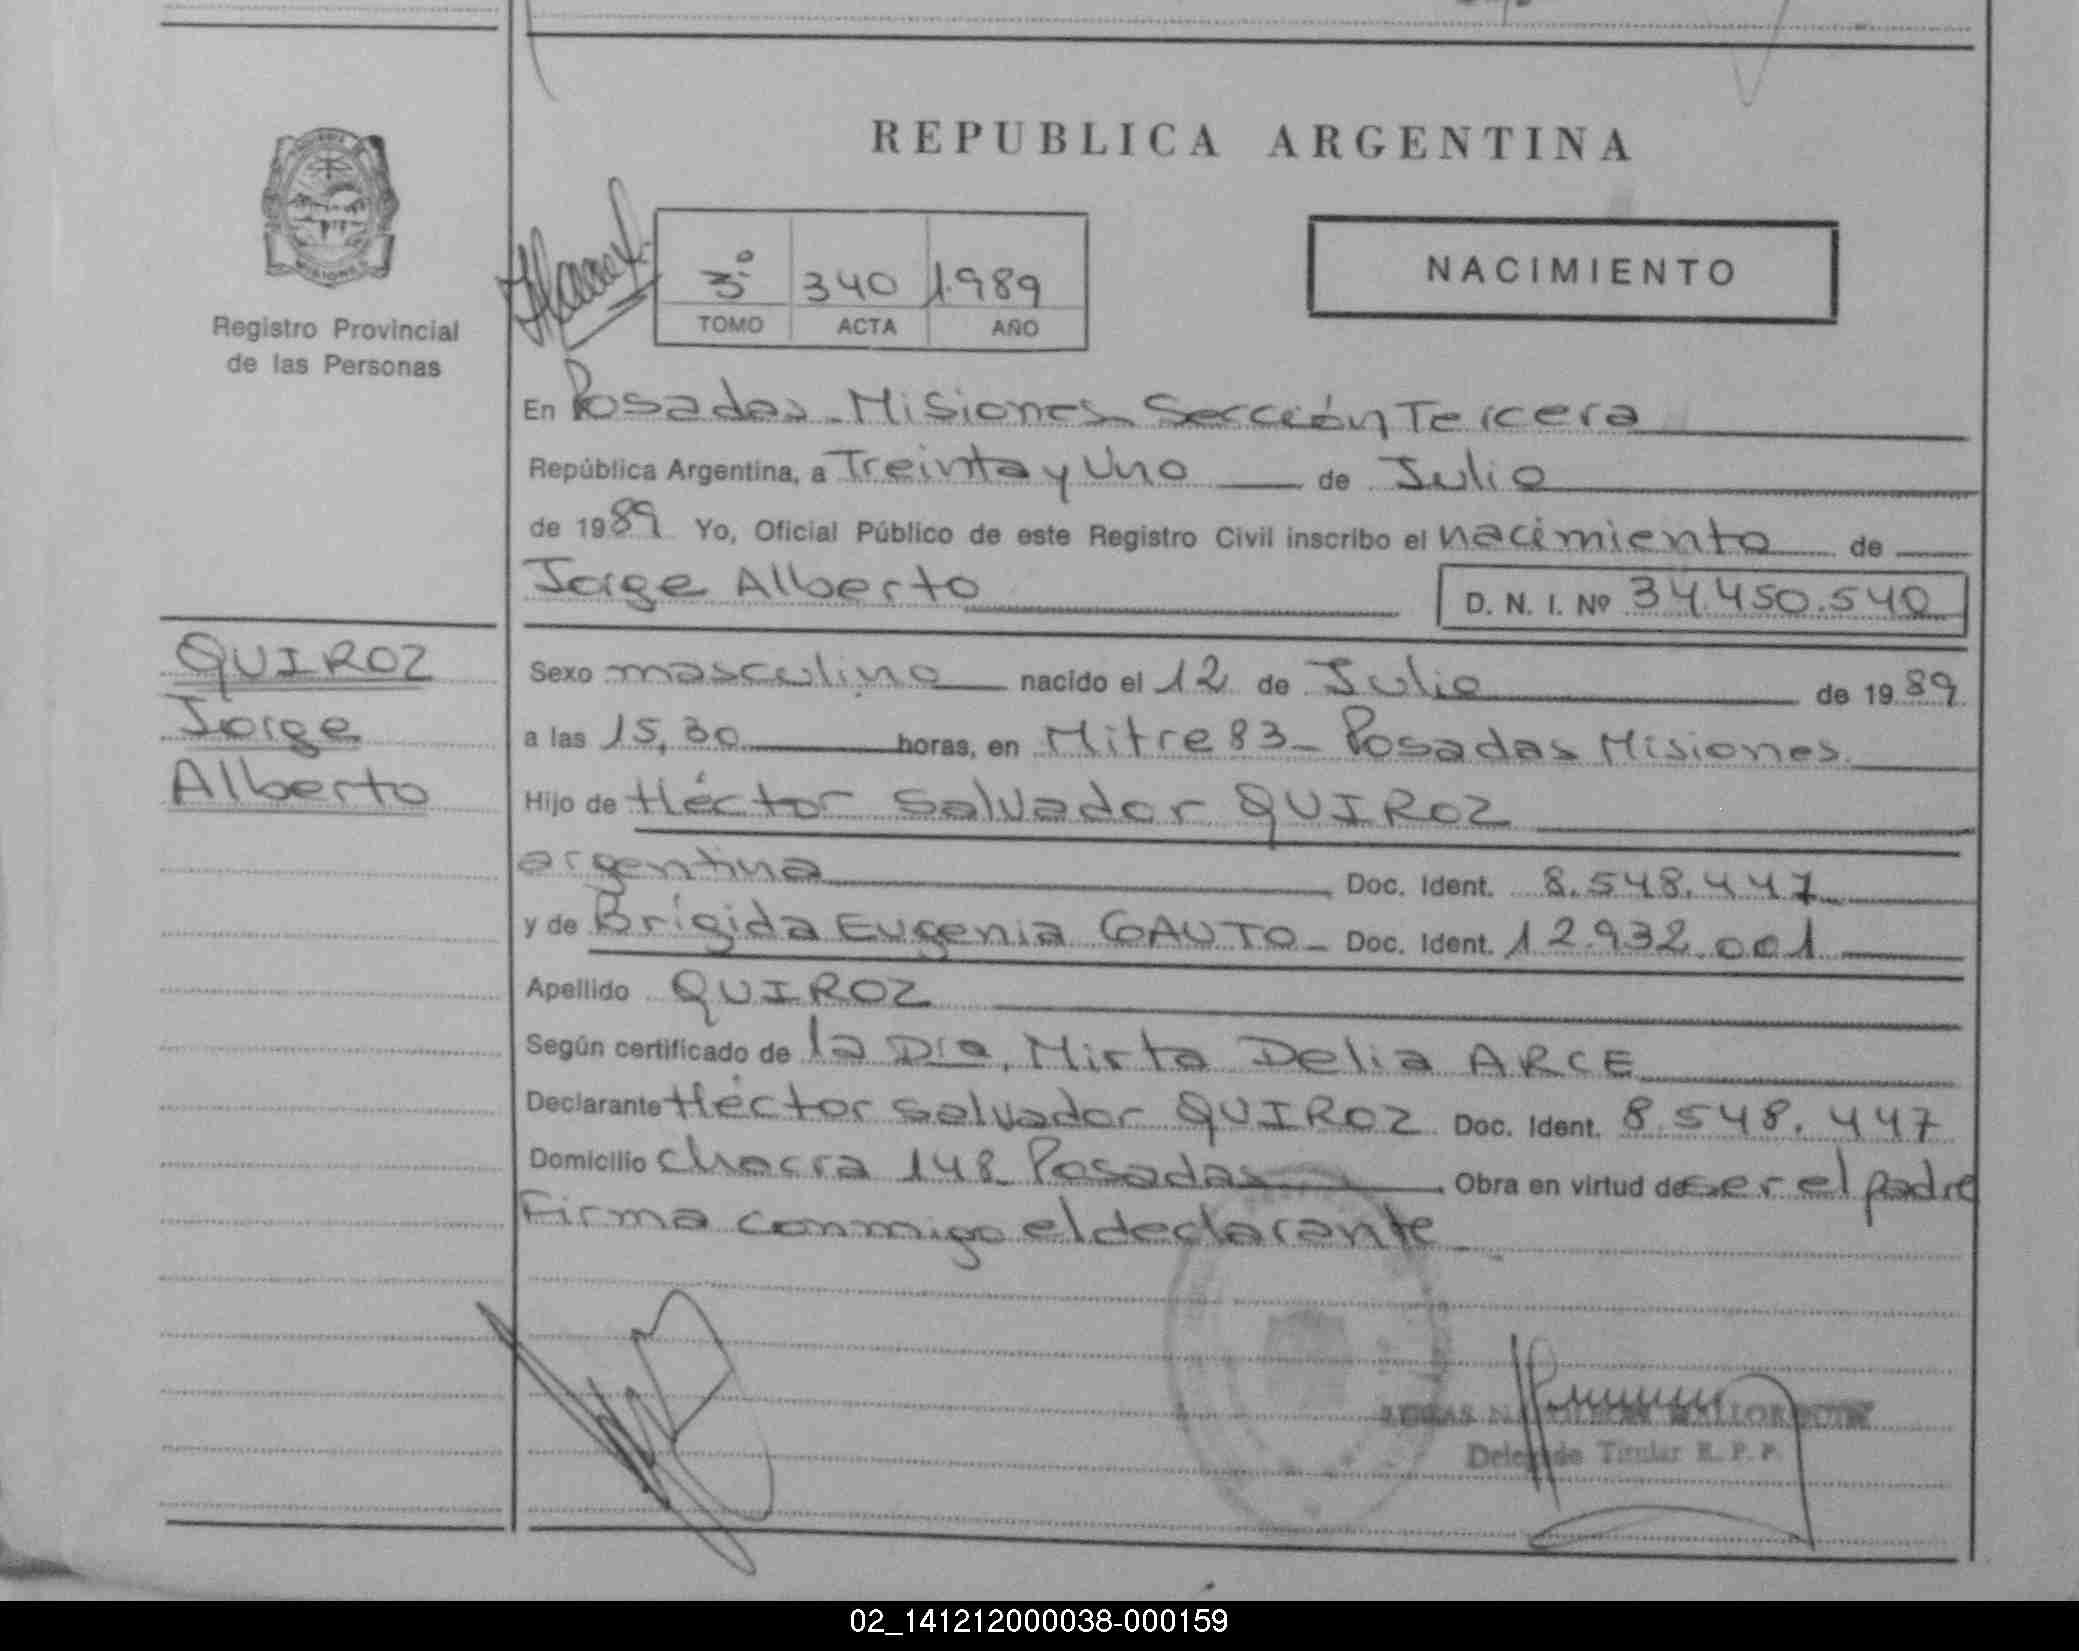 REPUBLICA ARGENTINA
Registro Provincial
de las Personas
3º 340 1.989
TOMO ACTA AÑO
NACIMIENTO
En Posadas - Misiones Sección Tercera
República Argentina, a Treinta y Uno de Julio
de 1989 Yo, Oficial Público de este Registro Civil inscribo el nacimiento de
Jorge Alberto D. N. I. Nº 34.450.540
QUIROZ
Jorge
Alberto
Sexo masculino nacido el 12 de Julio de 1989
a las 15,30 horas, en Mitre 83 - Posadas Misiones.
Hijo de Héctor Salvador QUIROZ
argentina Doc. Ident. 8.548.447
y de Brígida Eugenia GAUTO - Doc. Ident. 12.932.001
Apellido QUIROZ
Según certificado de la Dra. Mirta Delia ARCE
Declarante Héctor Salvador QUIROZ Doc. Ident. 8.548.447
Domicilio Chacra 148 Posadas Obra en virtud de ser el padre
Firma conmigo el declarante
Delegado Titular R. P. P.
02_141212000038-000159